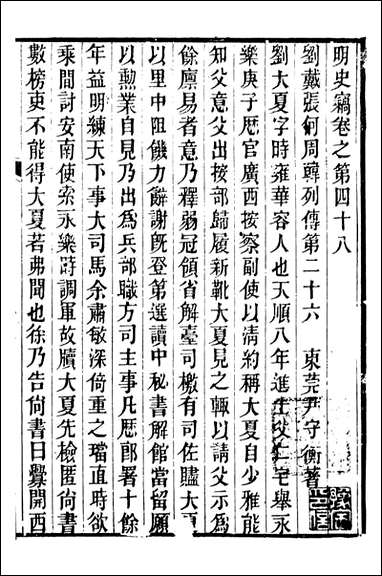 明史竊卷之第四十八
劉戴張何周韓列傳第二十六　東莞尹守衡著
劉大夏字時雍華容人也天順八年進士父仁宅舉永
樂庚子歷官廣西按察副使以清約稱大夏自少雅能
知父意父出按部歸履新靴大夏見之輒以請父示爲
餘廩易者意乃釋弱冠領省解臺司檄有司佐贐大夏
以里中阻饑力辭謝旣登第選讀中秘書解館當留願
以勲業自見乃出爲兵部職方司主事凡歷郎署十餘
年益明練天下事大司馬余肅敏深倚重之璫直時欲
乘間討安南使索永樂時調軍故牘大夏先檢匿尙書
數榜吏不能得大夏若弗聞也徐乃告尙書曰釁開西